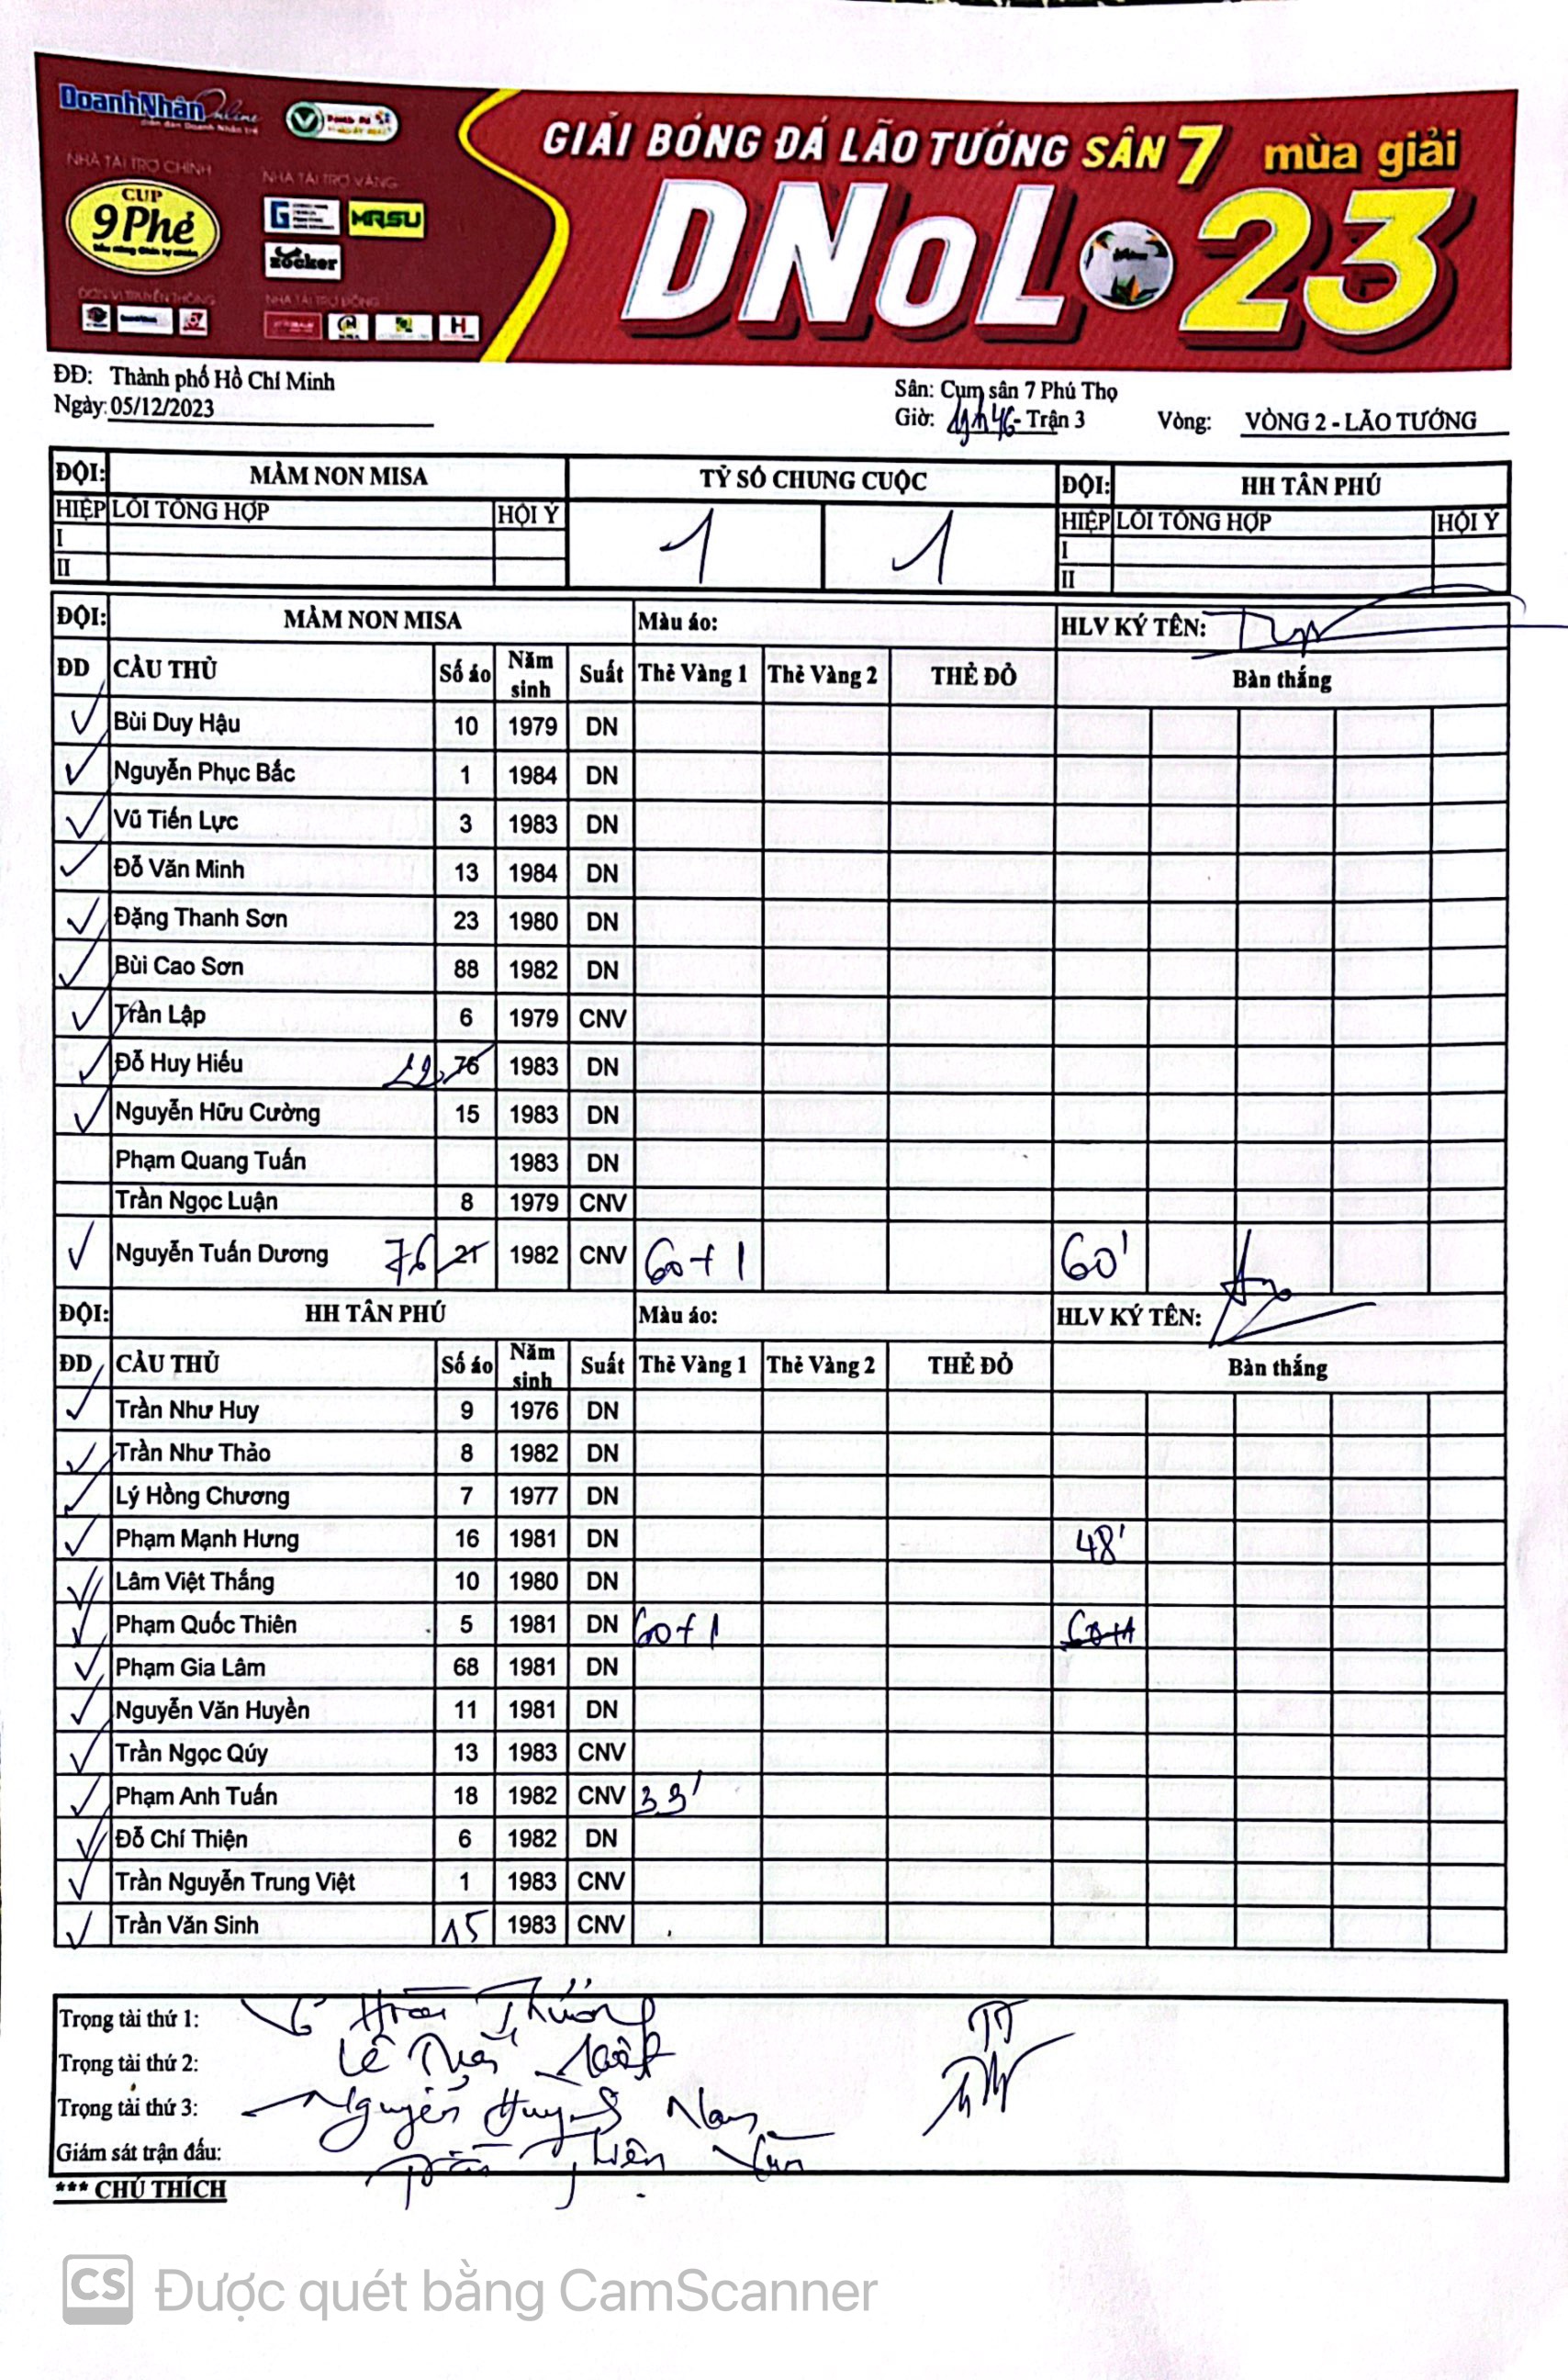 DoanhNhân Online
Diễn đàn Doanh Nhân trẻ
NHÀ TÀI TRỢ CHÍNH
NHÀ TÀI TRỢ VÀNG
CUP
9 Phẻ
G
MRSU
zocker
ĐƠN VỊ TRUYỀN THÔNG
NHÀ TÀI TRỢ ĐỒNG
GIẢI BÓNG ĐÁ LÃO TƯỚNG SÂN 7 mùa giải
DNOL 23
ĐĐ: Thành phố Hồ Chí Minh
Sân: Cụm sân 7 Phú Thọ
Ngày: 05/12/2023
Giờ: 19h46 - Trận 3 Vòng: VÒNG 2 - LÃO TƯỚNG
ĐỘI: MẦM NON MISA TỶ SỐ CHUNG CUỘC ĐỘI: HH TÂN PHÚ
HIỆP LỖI TỔNG HỢP HỘI Ý 1 1 HIỆP LỖI TỔNG HỢP HỘI Ý
I I
II II
ĐỘI: MẦM NON MISA Màu áo: HLV KÝ TÊN:
ĐD CẦU THỦ Số áo Năm sinh Suất Thẻ Vàng 1 Thẻ Vàng 2 THẺ ĐỎ Bàn thắng
✓ Bùi Duy Hậu 10 1979 DN
✓ Nguyễn Phục Bắc 1 1984 DN
✓ Vũ Tiến Lực 3 1983 DN
✓ Đỗ Văn Minh 13 1984 DN
✓ Đặng Thanh Sơn 23 1980 DN
✓ Bùi Cao Sơn 88 1982 DN
✓ Trần Lập 6 1979 CNV
✓ Đỗ Huy Hiếu 76 1983 DN
✓ Nguyễn Hữu Cường 15 1983 DN
Phạm Quang Tuấn 1983 DN
Trần Ngọc Luận 8 1979 CNV
✓ Nguyễn Tuấn Dương 76 21 1982 CNV 60+1 60'
ĐỘI: HH TÂN PHÚ Màu áo: HLV KÝ TÊN:
ĐD CẦU THỦ Số áo Năm sinh Suất Thẻ Vàng 1 Thẻ Vàng 2 THẺ ĐỎ Bàn thắng
✓ Trần Như Huy 9 1976 DN
✓ Trần Như Thảo 8 1982 DN
✓ Lý Hồng Chương 7 1977 DN
✓ Phạm Mạnh Hưng 16 1981 DN 48'
✓ Lâm Việt Thắng 10 1980 DN
✓ Phạm Quốc Thiên 5 1981 DN 60+1 60+1
✓ Phạm Gia Lâm 68 1981 DN
✓ Nguyễn Văn Huyền 11 1981 DN
✓ Trần Ngọc Qúy 13 1983 CNV
✓ Phạm Anh Tuấn 18 1982 CNV 33'
✓ Đỗ Chí Thiện 6 1982 DN
✓ Trần Nguyễn Trung Việt 1 1983 CNV
✓ Trần Văn Sinh 15 1983 CNV
Trọng tài thứ 1: Võ Hoài Thương
Trọng tài thứ 2: Lê Tuấn
Trọng tài thứ 3: Nguyễn Huỳnh Nam
Giám sát trận đấu: Trần Thiện
*** CHÚ THÍCH
CS Được quét bằng CamScanner